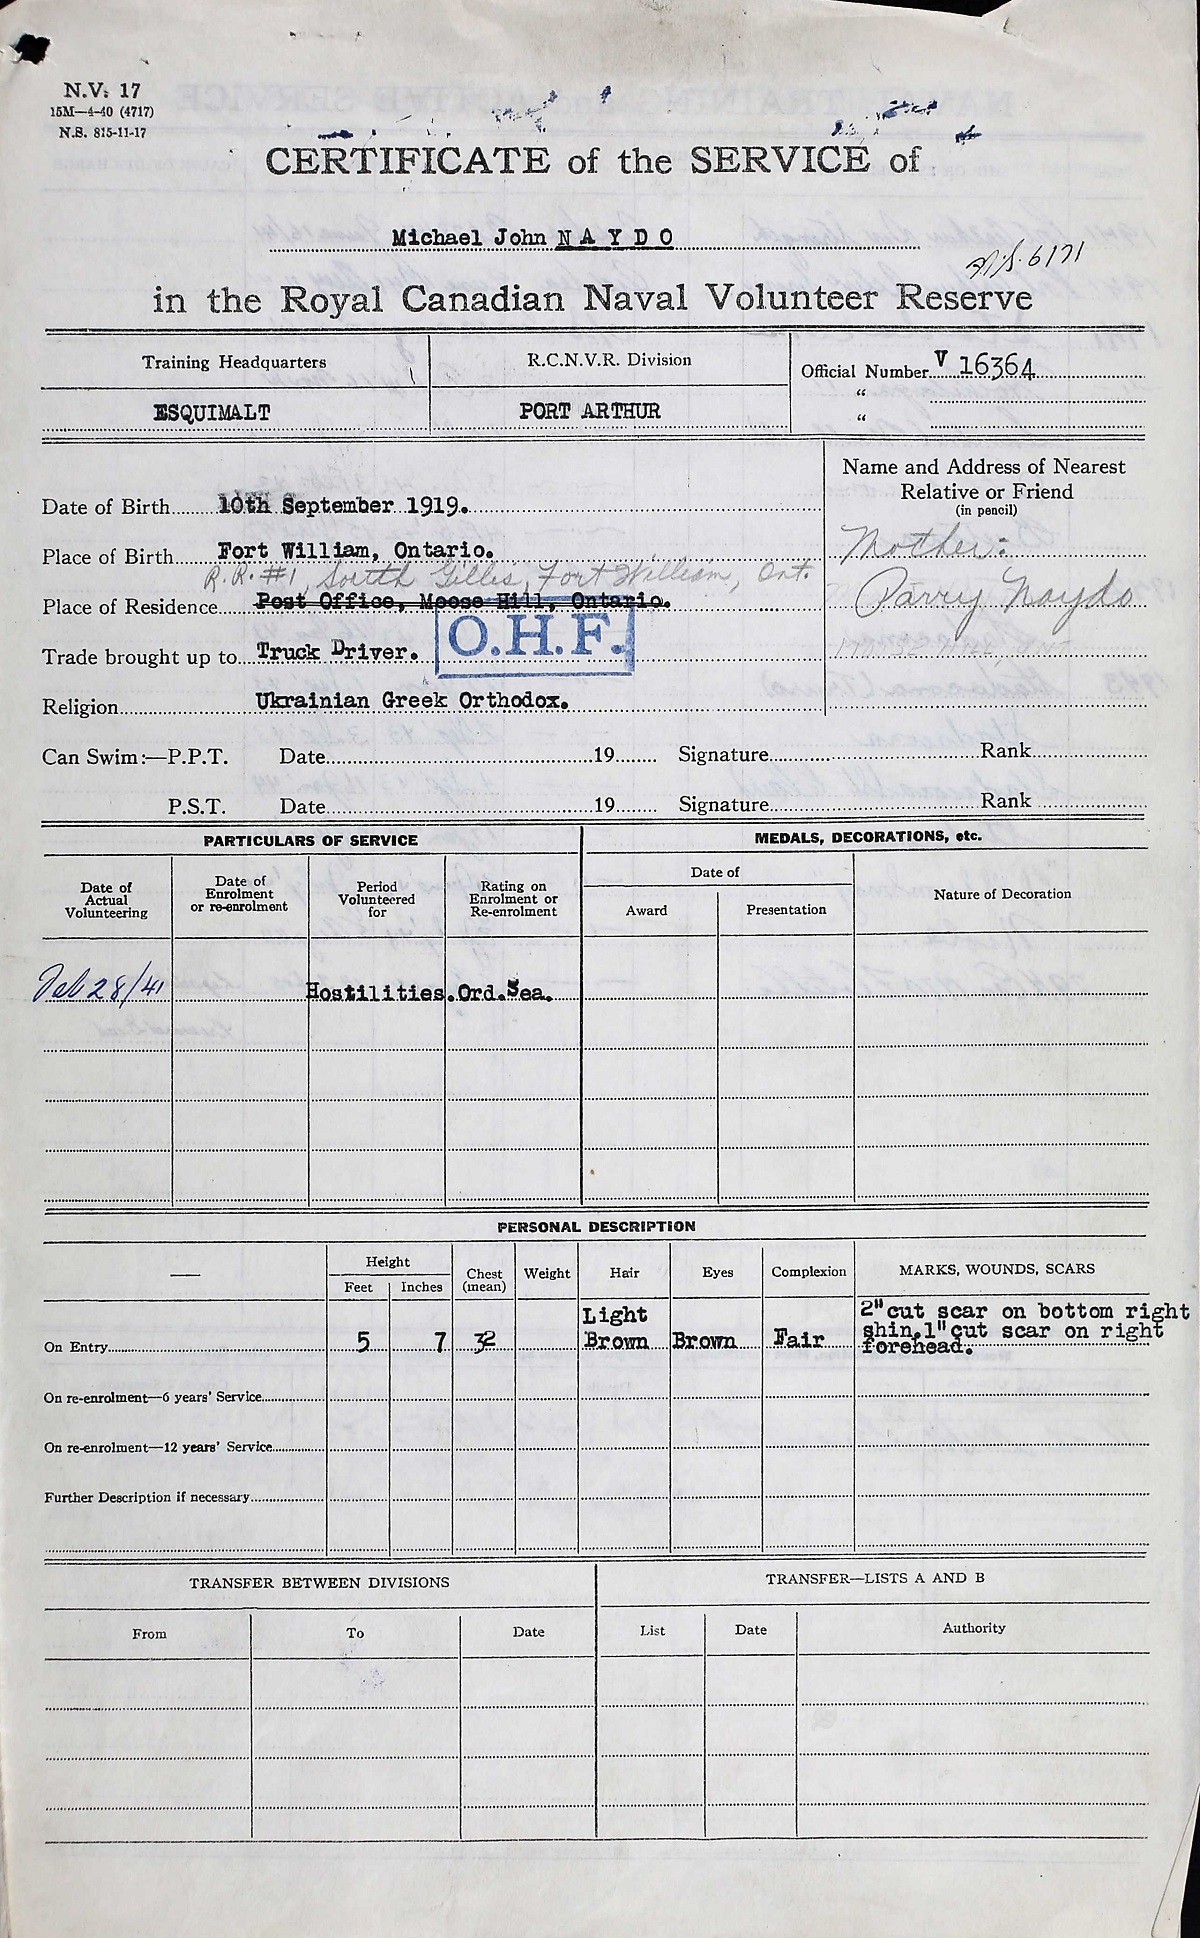 N.V. 17
15M—4-40 (4717)
N.S. 815-11-17
CERTIFICATE of the SERVICE of
Michael John N A Y D O
in the Royal Canadian Naval Volunteer Reserve
Training Headquarters
R.C.N.V.R. Division
Official Number V 16364
ESQUIMALT
PORT ARTHUR
“
“
Name and Address of Nearest
Relative or Friend
(in pencil)
Date of Birth 10th September 1919.
Mother:
Place of Birth Fort William, Ontario.
R.R. #1, South Gillies, Fort William, Ont.
Place of Residence Post Office, Moose Hill, Ontario.
Parry Naydo
O.H.F.
Trade brought up to Truck Driver.
Religion Ukrainian Greek Orthodox.
Can Swim:—P.P.T. Date 19 Signature Rank
P.S.T. Date 19 Signature Rank
PARTICULARS OF SERVICE
MEDALS, DECORATIONS, etc.
Date of
Actual
Volunteering
Date of
Enrolment
or re-enrolment
Period
Volunteered
for
Rating on
Enrolment or
Re-enrolment
Date of
Award
Presentation
Nature of Decoration
Feb 28/41 Hostilities. Ord.Sea.
PERSONAL DESCRIPTION
—
Height
Feet
Inches
Chest
(mean)
Weight
Hair
Eyes
Complexion
MARKS, WOUNDS, SCARS
On Entry 5 7 32
Light
Brown
Brown
Fair
2" cut scar on bottom right
shin.1" cut scar on right
forehead.
On re-enrolment—6 years' Service
On re-enrolment—12 years' Service
Further Description if necessary
TRANSFER BETWEEN DIVISIONS
TRANSFER—LISTS A AND B
From
To
Date
List
Date
Authority